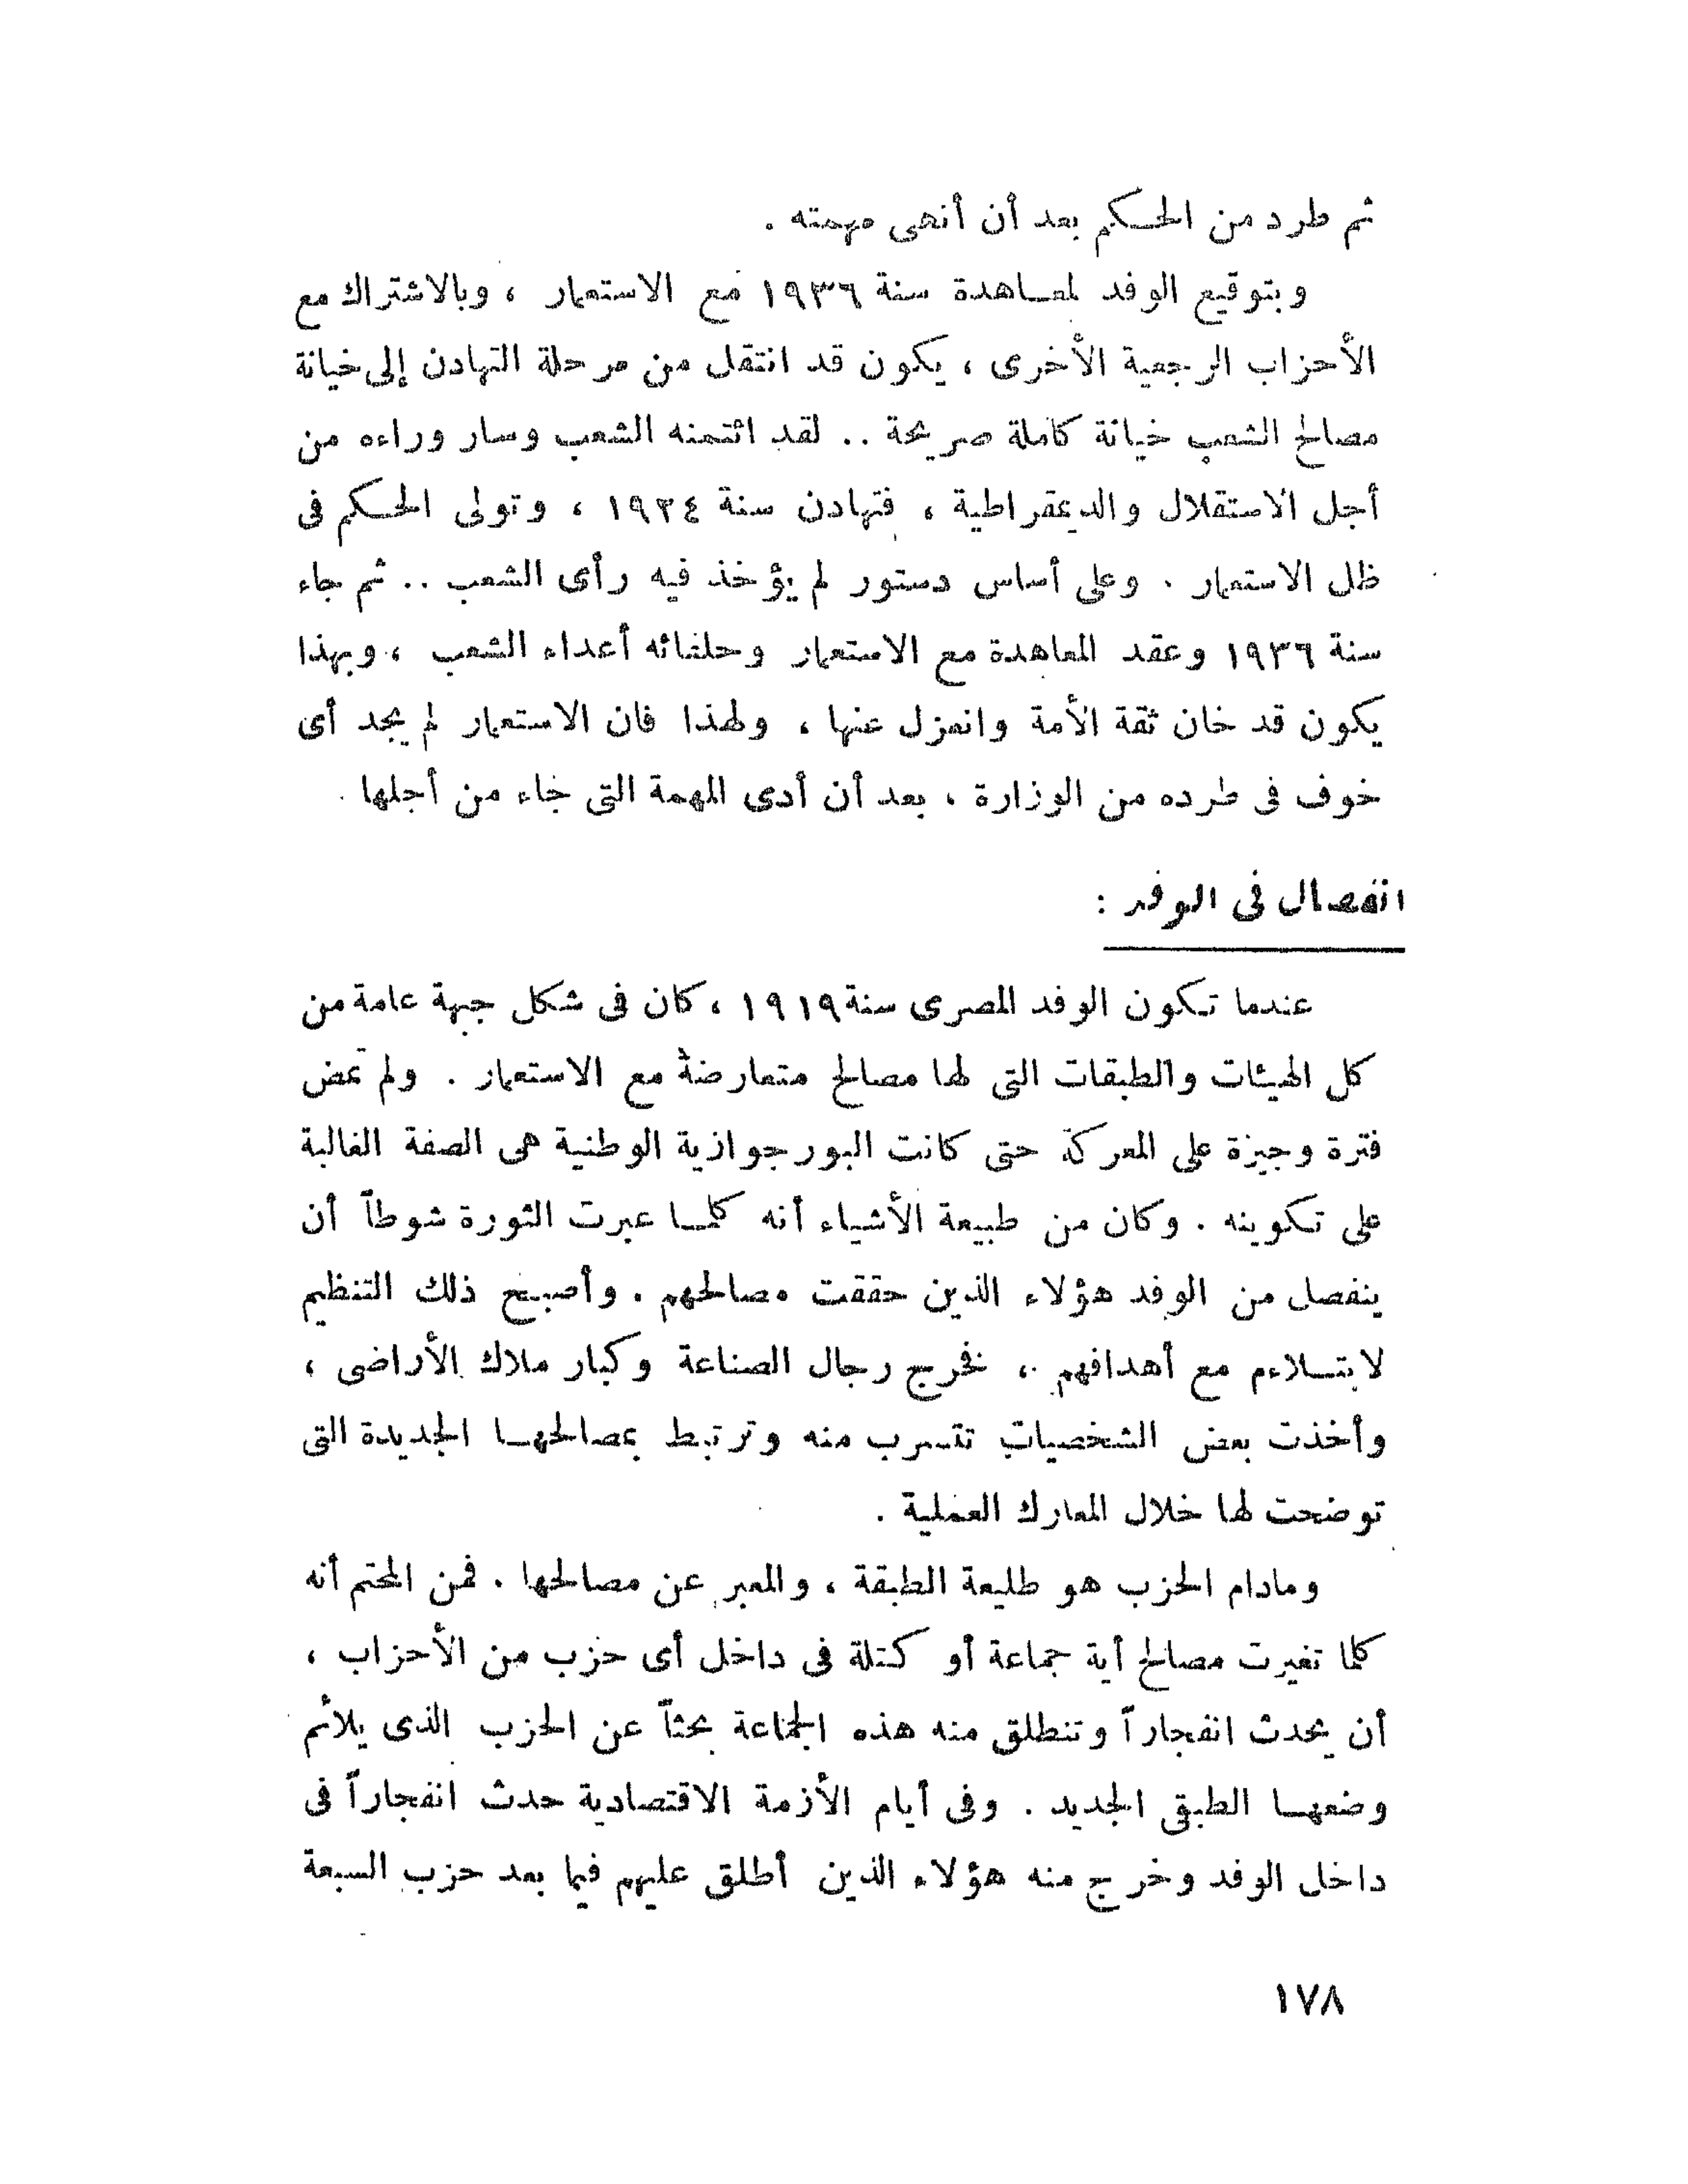 ثم طرد من الحكم بعد أن أنهى مهمته .
وبتوقيع الوفد لمعاهدة سنة ١٩٣٦ مع الاستعمار ، وبالاشتراك مع
الأحزاب الرجعية الأخرى ، يكون قد انتقل من مرحلة التهادن إلى خيانة
مصالح الشعب خيانة كاملة صريحة .. لقد ائتمنه الشعب وسار وراءه من
أجل الاستقلال والديمقراطية ، فتهادن سنة ١٩٢٤ ، وتولى الحكم فى
ظل الاستعمار . وعلى أساس دستور لم يؤخذ فيه رأى الشعب .. ثم جاء
سنة ١٩٣٦ وعقد المعاهدة مع الاستعمار وحلفائه أعداء الشعب ، وبهذا
يكون قد خان ثقة الأمة وانعزل عنها ، ولهذا فان الاستعمار لم يجد أى
خوف فى طرده من الوزارة ، بعد أن أدى المهمة التى جاء من أجلها .
انفصال فى الوفد :
عندما تكون الوفد المصرى سنة ١٩١٩ ، كان فى شكل جبهة عامة من
كل الهيئات والطبقات التى لها مصالح متعارضة مع الاستعمار . ولم تمض
فترة وجيزة على المعركة حتى كانت البورجوازية الوطنية هى الصفة الغالبة
على تكوينه . وكان من طبيعة الأشياء أنه كلما عبرت الثورة شوطاً أن
ينفصل من الوفد هؤلاء الذين حققت مصالحهم . وأصبح ذلك التنظيم
لا يتلاءم مع أهدافهم ، فخرج رجال الصناعة وكبار ملاك الأراضى ،
وأخذت بعض الشخصيات تتسرب منه وترتبط بمصالحها الجديدة التى
توضحت لها خلال المعارك العملية .
ومادام الحزب هو طليعة الطبقة ، والمعبر عن مصالحها . فمن المحتم أنه
كلما تغيرت مصالح أية جماعة أو كتلة فى داخل أى حزب من الأحزاب ،
أن يحدث انفجاراً وتنطلق منه هذه الجماعة بحثاً عن الحزب الذى يلائم
وضعها الطبقى الجديد . وفى أيام الأزمة الاقتصادية حدث انفجاراً فى
داخل الوفد وخرج منه هؤلاء الذين أطلق عليهم فيما بعد حزب السبعة
١٧٨